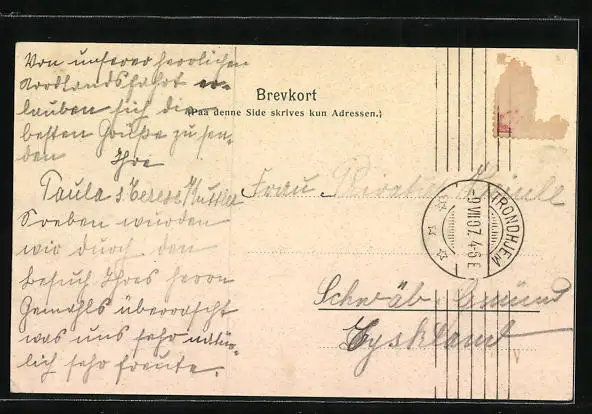 Von unserer herrlichen
Nordlandsfahrt er-
lauben sich die
besten Grüße zu sen-
den Ihre
Paula &
Soeben wurden
wir durch den
Besuch Ihres Herrn
Gemahls überrascht
was uns sehr natür-
lich sehr freute.
Brevkort
(Paa denne Side skrives kun Adressen.)
Frau
Schwäb. Gmünd
Tyskland
TRONDHJEM
9 VII 07 4-5 E